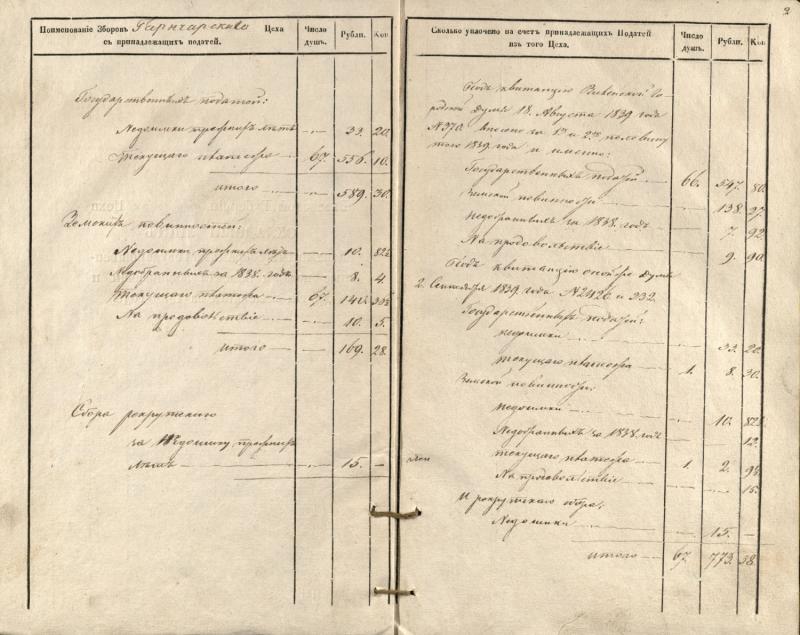 Поименованіе Зборовъ Гарнчарскаго Цеха Число Рубли. Коп.
съ принадлежащихъ податей. душъ.
Государственныхъ податей:
Недоимки прежнихъ лѣтъ — 33. 20.
Текущаго 67. 556. 10.
итого — 589. 30.
Земскихъ повинностей:
Недоимки прежнихъ лѣтъ 10. 82½
Недобранныхъ за 1838. годъ 8. 4.
Текущаго 67.
На продовольствіе — 10. 5.
итого — 169. 28.
Сбора рекрутскаго
за Недоимку прежнихъ
лѣтъ — 15. —
2
Сколько уплочено на счетъ принадлежащихъ Податей Число Рубли. Коп.
изъ того Цеха. душъ.
Подъ квитанцію Виленской Го-
родской Думы 18. Августа 1839 года
N 370. внесено за 1ю и 2ю половину
того 1839 года и именно:
Государственныхъ податей — 66. 547. 80.
Земской повинности — 138. 27.
Недобранныхъ за 1838. годъ 7. 92
На продовольствіе — 9. 90.
Подъ квитанцію оной же Думы
2. Сентября 1839. года и 332.
Государственныхъ податей:
недоимки — 33. 20.
текущаго 1. 8. 30.
Земской повинности:
недоимки — 10. 82½
Недобранныхъ за 1838. годъ 12.
текущаго 1. 2.
На продовольствіе — 15.
И рекрутскаго сбора:
Недоимки — 15. —
итого — 67. 773. 38.